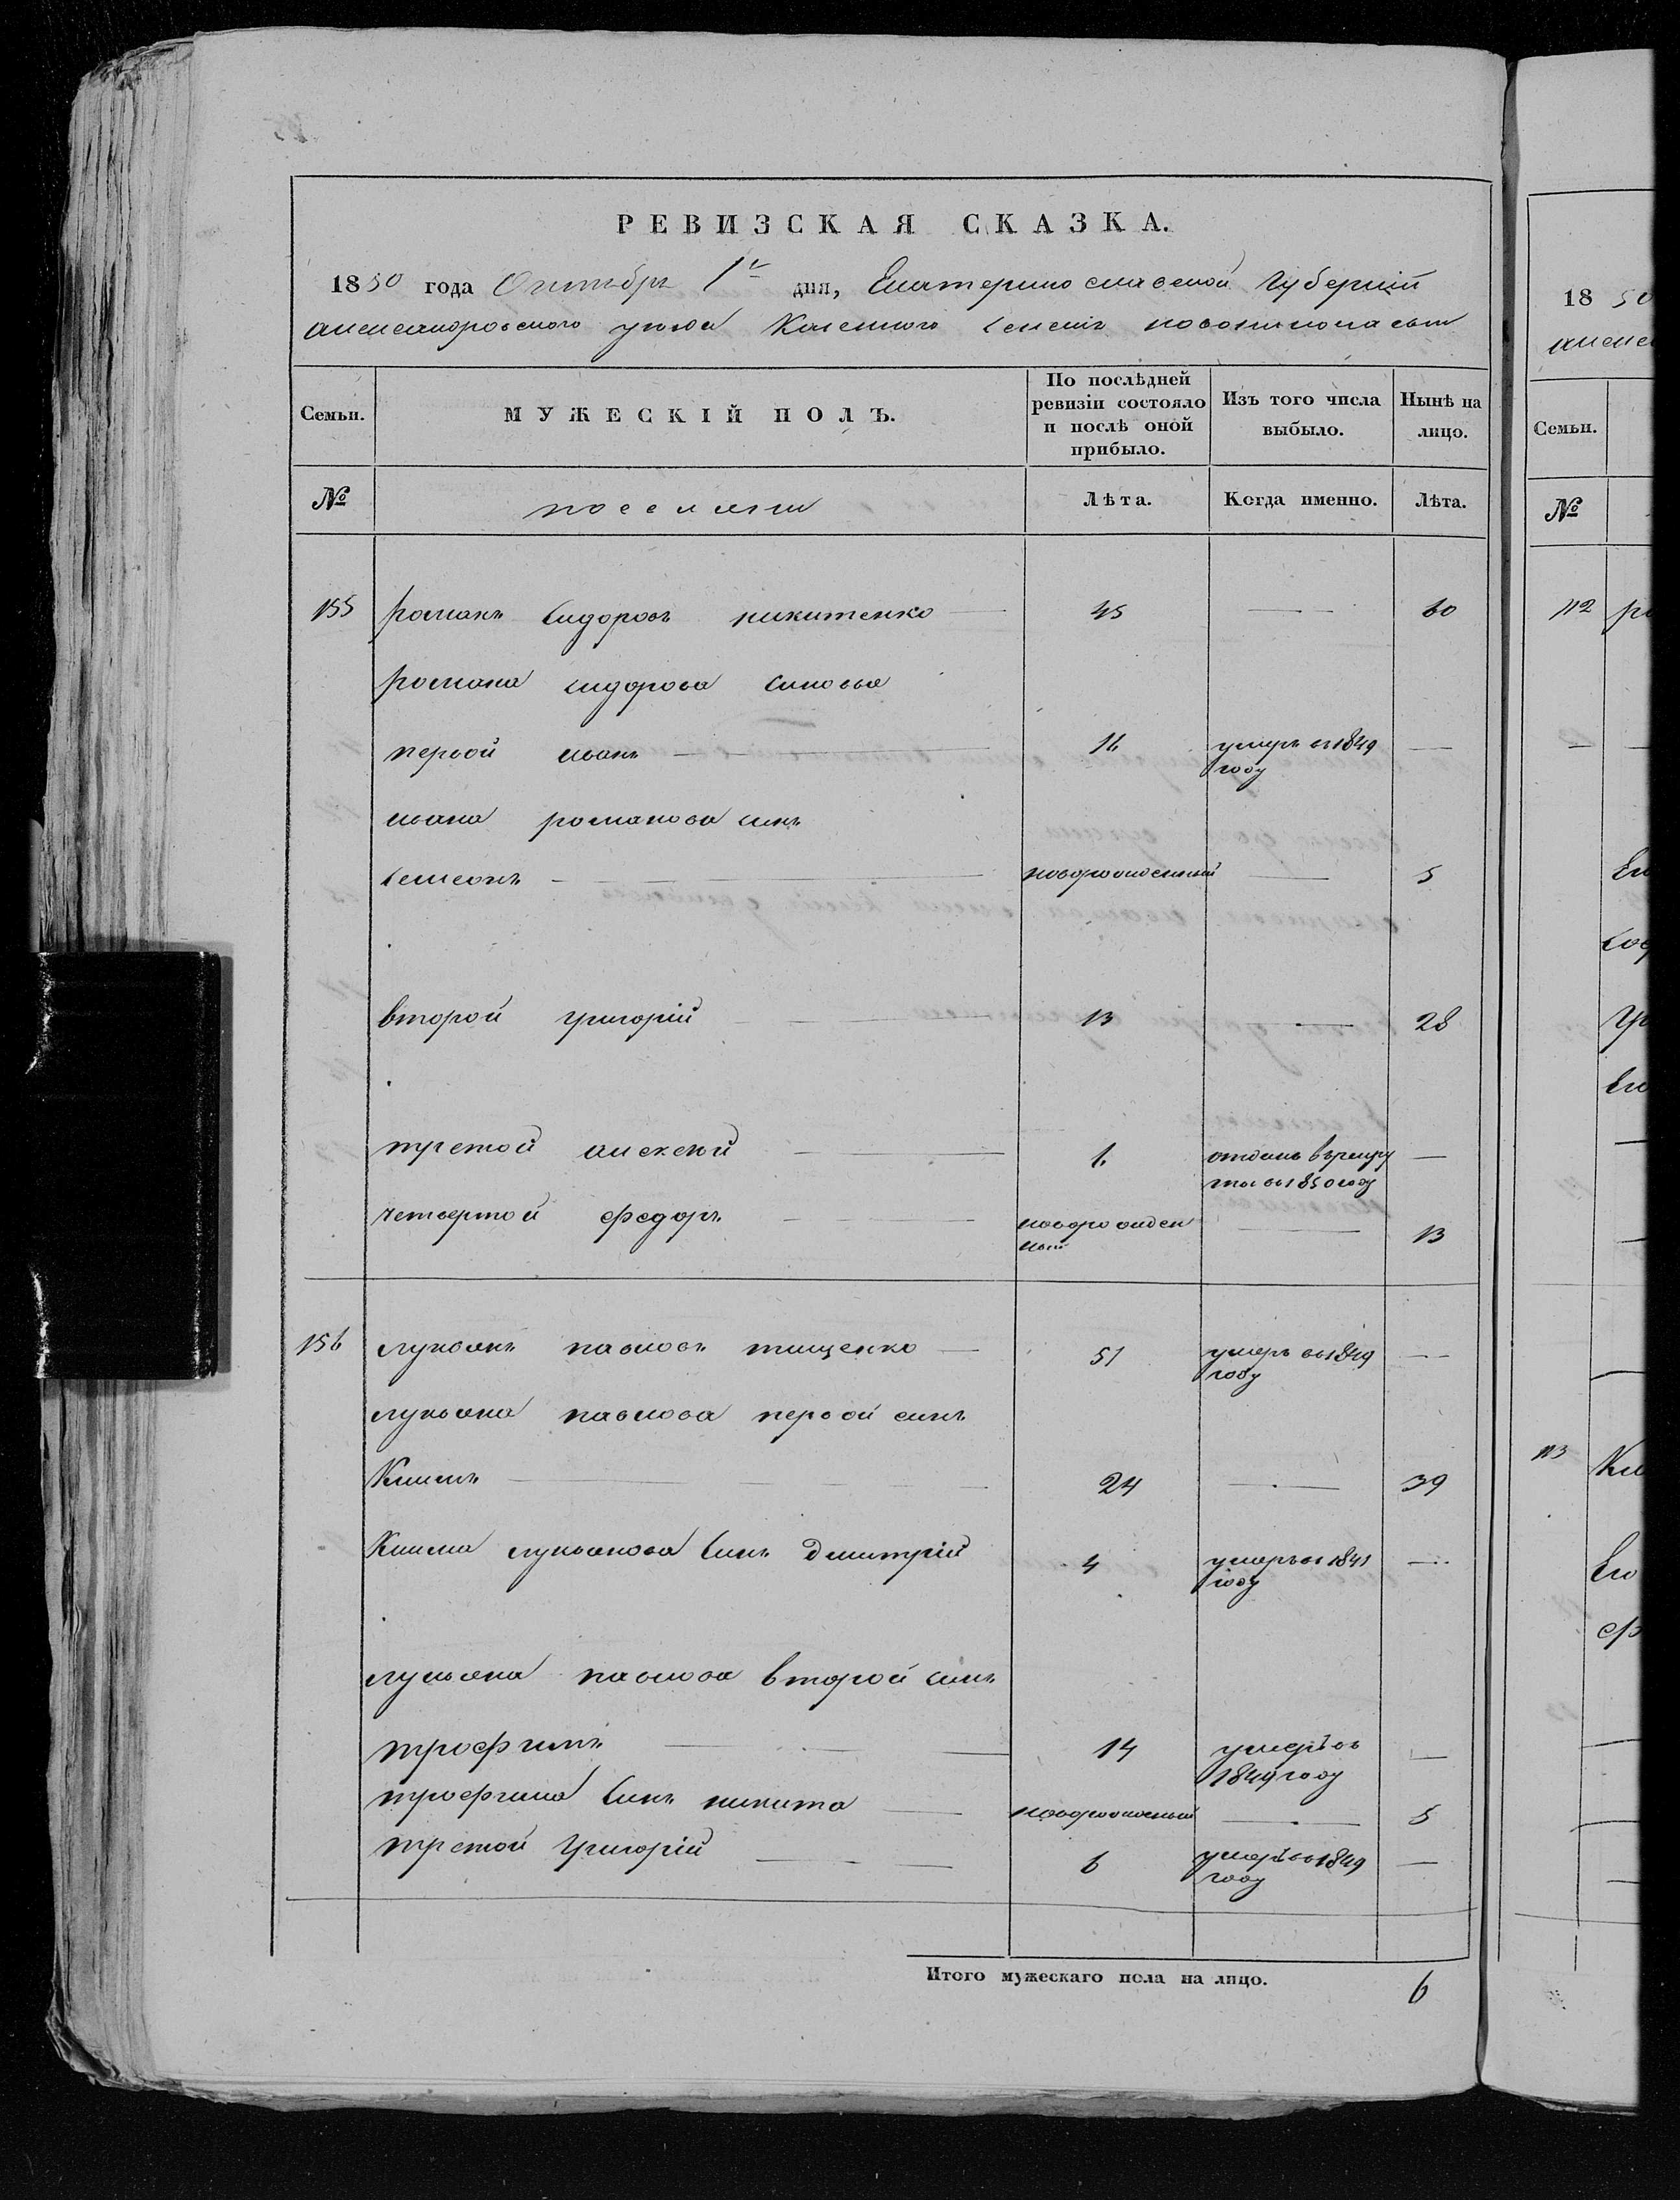 РЕВИЗСКАЯ СКАЗКА.
1850 года Октября 1го дня, Екатеринославской Губерніи
александровского уезда Казенного Селенія новониколаевки
Семьи. МУЖЕСКІЙ ПОЛЪ. По послѣдней ревизіи состояло и послѣ оной прибыло. Изъ того числа выбыло. Нынѣ на лицо.
№ Лѣта. Когда именно. Лѣта.
155 романъ Сидоровъ никитенко — 45 — 60
романа сидорова синовья
первой иванъ — 16 умеръ въ 1849 году —
ивана романова синъ
Семеонъ — новорожденный — 5
второй григорій — 13 — 28
третой алексей — 1. отданъ врекру
ты въ 1850 году —
четвертой федоръ — новорожден
ный — 13
156 лукьянъ павловъ тищенко — 51 умеръ въ 1849 году —
лукьяна павлова первой синъ
Климъ — 24 — 39
Клима лукьянова Синъ дмитрій 4 умеръ въ 1841 году —
лукьяна павлова второй синъ
трофимъ — 14 умеръ въ
1849 году —
трофима Синъ никита — новорожденный — 5
третой Григорій — 6 умеръ въ 1849 году —
Итого мужескаго пола на лицо. 6
1850
Семьи.
№
112
113